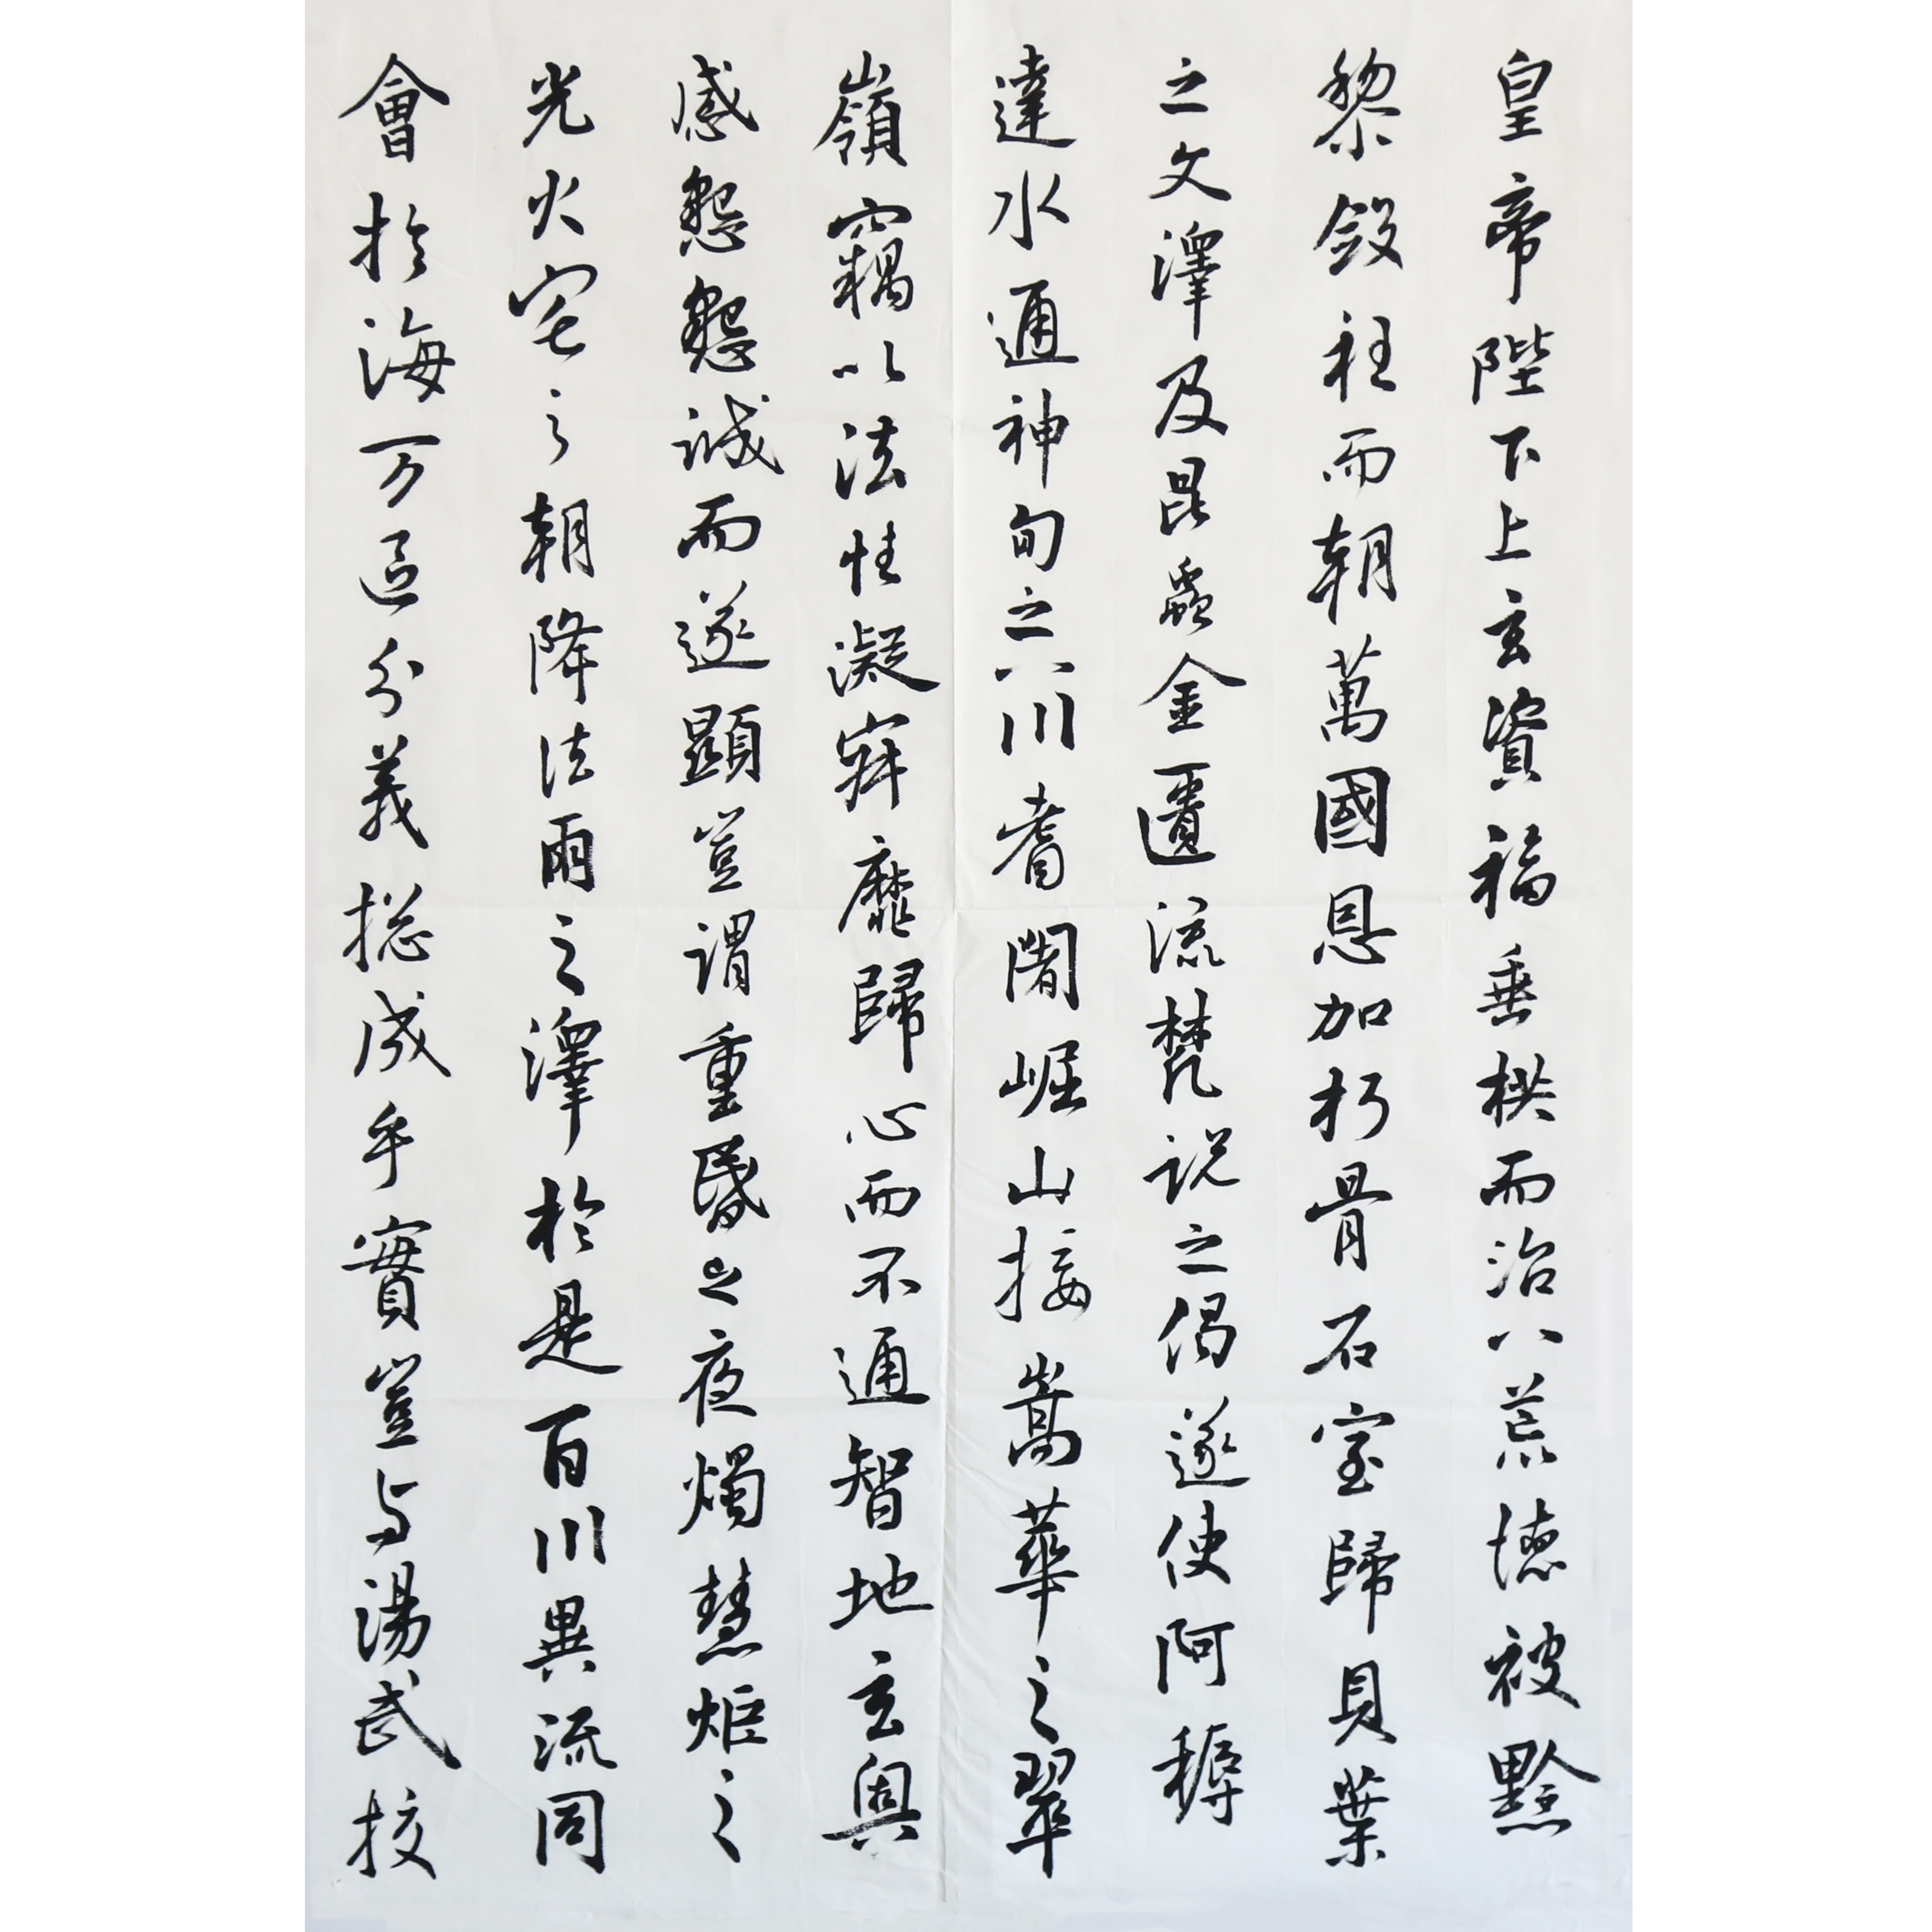 皇帝陛下上玄資福垂拱而治八荒德被黔
黎斂衽而朝萬國恩加朽骨石室歸貝葉
之文澤及昆蟲金匱流梵說之偈遂使阿耨
達水通神甸之八川耆闍崛山接嵩華之翠
嶺竊以法性凝寂靡歸心而不通智地玄奧
感懇懇誠而遂顯豈謂重昏之夜燭慧炬之
光火宅之朝降法雨之澤於是百川異流同
會於海万區分義捴成乎實豈与湯武挍